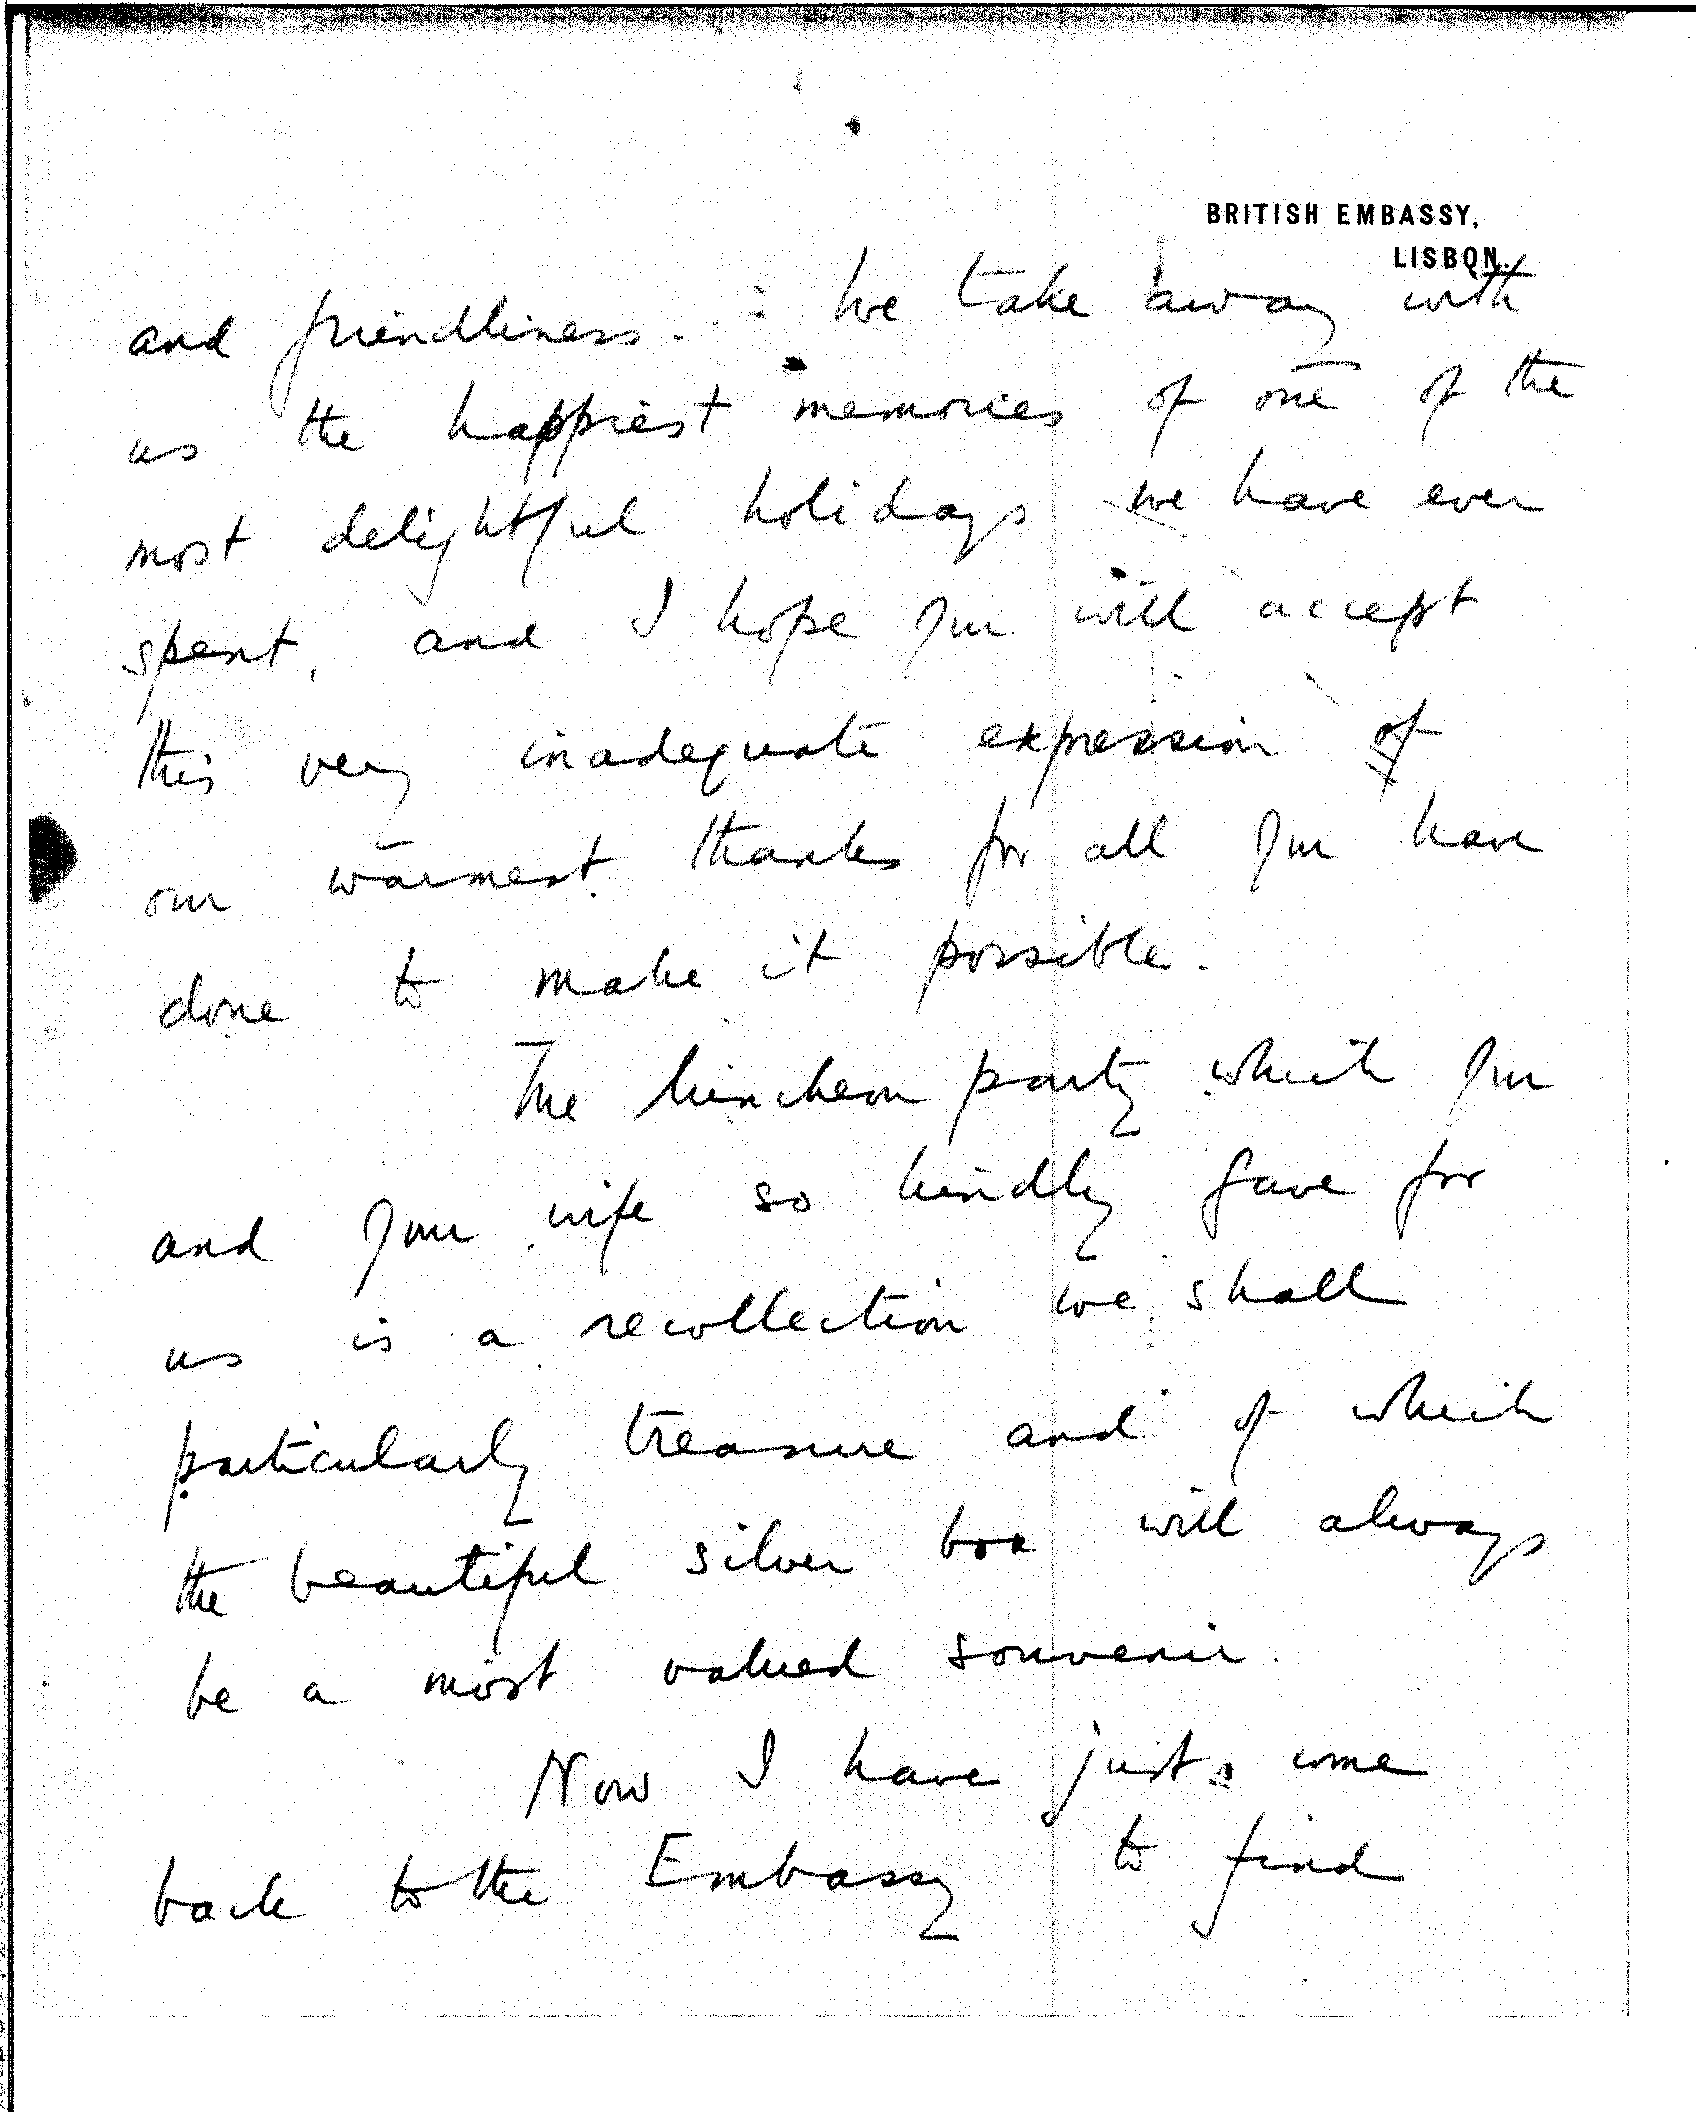 BRITISH EMBASSY,
LISBON.
and friendliness. We take away with
us the happiest memories of one of the
most delightful holidays we have ever
spent, and I hope you will accept
this very inadequate expression of
our warmest thanks for all you have
done to make it possible.
The luncheon party which you
and your wife so kindly gave for
us is a recollection we shall
particularly treasure and of which
the beautiful silver box will always
be a most valued souvenir.
Now I have just come
back to the Embassy to find